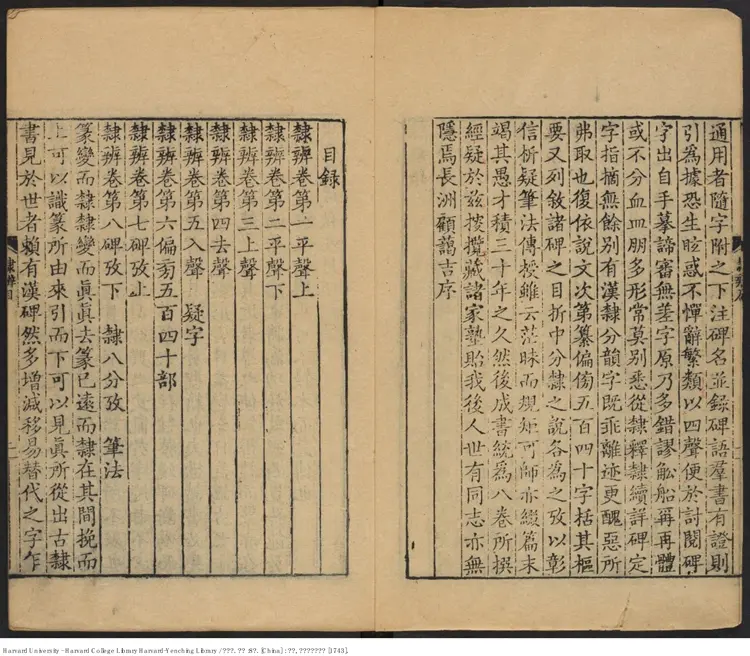 通用者隨字附之下注碑名並録碑語羣書有證則
引為據恐生眩惑不憚辭繁類以四聲便於討閱碑
字出自手摹諦審無差字原乃多錯謬舩船再再體
或不分血皿朋多形常莫别悉從隸釋隸續詳碑定
字指摘無餘别有漢隸分韻字既乖離迹更醜惡所
弗取也復依說文次第纂偏傍五百四十字括其樞
要又列敘諸碑之目折中分隸之說各為之攷以彰
信析疑筆法傳授雖云茫昧而規矩可師亦綴篇末
竭其愚才積三十年之久然後成書統為八卷所撰
經疑於兹㨷攬藏諸家塾貽我後人世有同志亦無
隱焉長洲顧藹吉序
隸辨目
目録
隸辨卷第一平聲上
隸辨卷第二平聲下
隸辨卷第三上聲
隸辨卷第四去聲
隸辨卷第五入聲 疑字
隸辨卷第六偏旁五百四十部
隸辨卷第七碑攷上
隸辨卷第八碑攷下 隸八分攷 筆法
篆變而隸隸變而真真去篆已遠而隸在其間挽而
上可以識篆所由來引而下可以見真所從出古隸
書見於世者賴有漢碑然多增減移易替代之字乍
Harvard University - Harvard College Library Harvard-Yenching Library / ???. ?? :8?. [China] : ??, ??????? [1743].